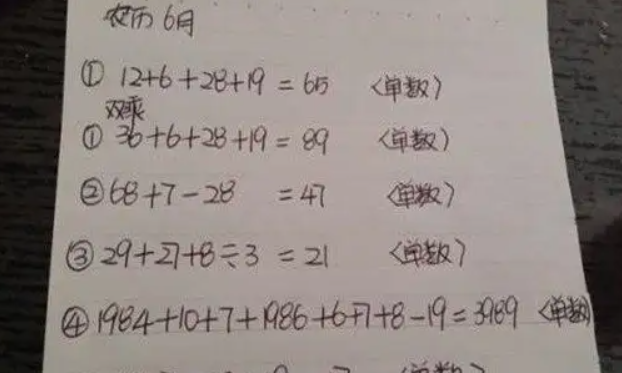 农历6月
① 12+6+28+19=65 〈单数〉
双乘
① 36+6+28+19=89 〈单数〉
② 68+7-28 =47 〈单数〉
③ 29+27+8÷3=21 〈单数〉
④ 1984+10+7+1986+6+7+8-19=3989 〈单数〉